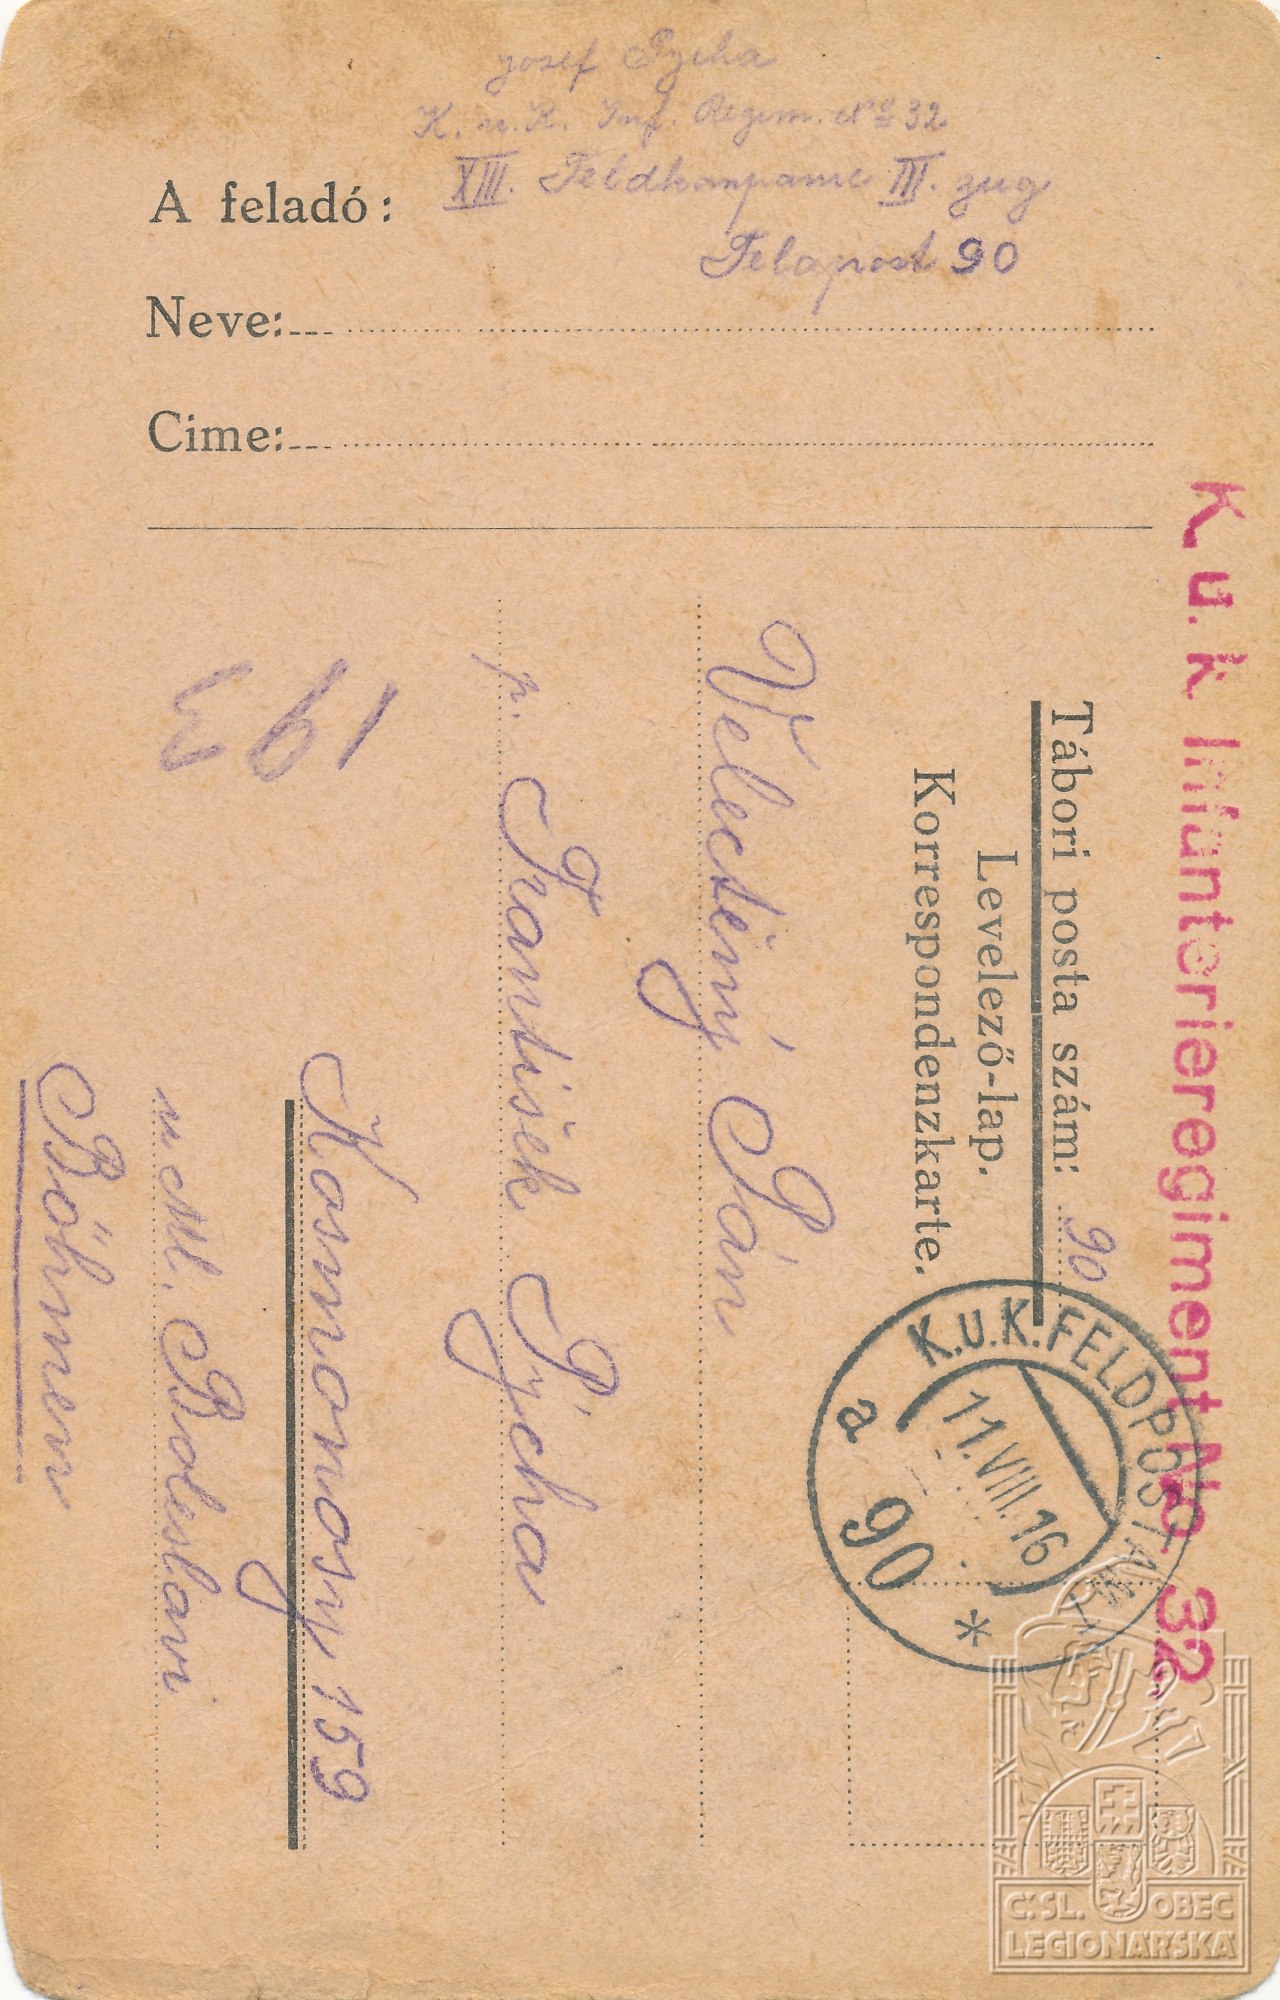 Josef Pycha
K. u. K. Inf. Regim. No 32
XIII. Feldkompanie III. zug
Feldpost 90
A feladó:
Neve:
Cime:
K u. k Infanterieregiment No. 32
Tábori posta szám: 90
Levelező-lap.
Korrespondenzkarte.
K.U.K. FELDPOSTAMT
11.VIII.16
a 90 *
Velectěný Pán
p. František Pýcha
Kosmonosy 159
u Ml. Boleslavi
Böhmen
C.SL. OBEC
LEGIONÁŘSKÁ